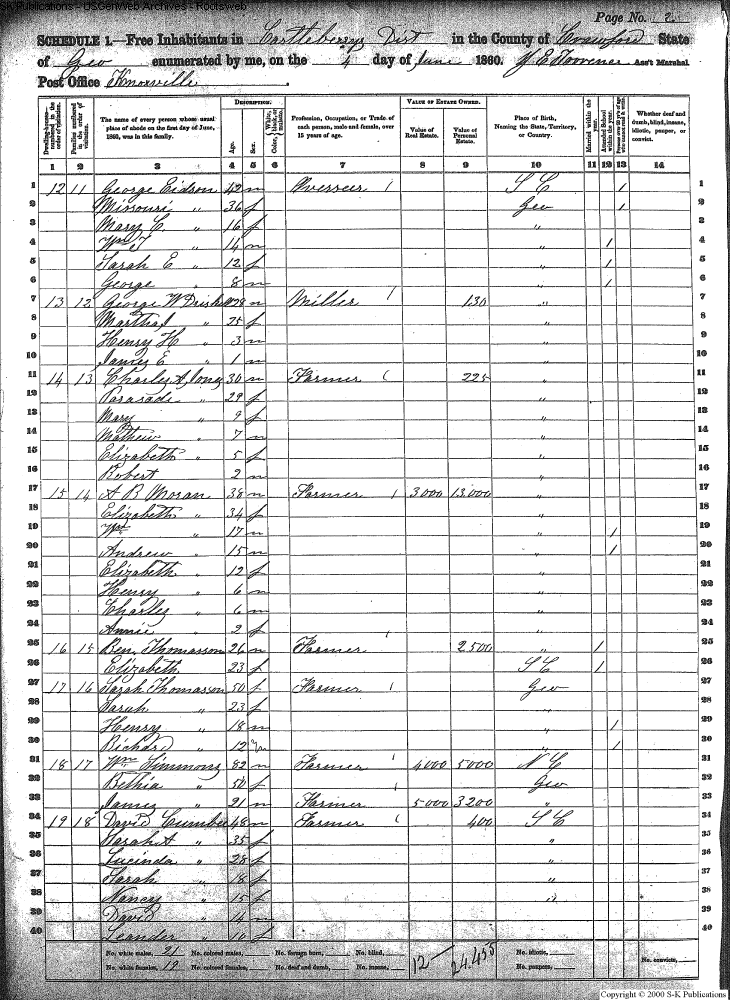 S-K Publications - USGenWeb Archives - Rootsweb
Page No. 2
SCHEDULE 1.—Free Inhabitants in Castleberrys Dist in the County of Crawford State
of Geo enumerated by me, on the 4 day of June 1860. Ass't Marshal
Post Office Knoxville
DESCRIPTION. VALUE OF ESTATE OWNED.
Dwelling-houses—numbered in the order of visitation. Families numbered in the order of visitation. The name of every person whose usual place of abode on the first day of June, 1860, was in this family. Age. Sex. Color, White, black, or mulatto. Profession, Occupation, or Trade of each person, male and female, over 15 years of age. Value of Real Estate. Value of Personal Estate. Place of Birth, Naming the State, Territory, or Country. Married within the year. Attended School within the year. Whether deaf and dumb, blind, insane, idiotic, pauper, or convict.
1 2 3 4 5 6 7 8 9 10 11 12 13 14
1 12 11 George Eidson 42 m Overseer / S C / 1
2 Missouri " 36 f Geo / 2
3 Mary C. " 16 f " 3
4 Wm T " 14 m " / 4
5 Sarah E " 12 f " / 5
6 George " 8 m " / 6
7 13 12 George W 28 m Miller / 130 " 7
8 Martha J " 25 f " 8
9 Henry H " 3 m " 9
10 James E " 1 m 10
11 14 13 Charles A Jones 30 m Farmer / 225 " 11
12 " 29 f " 12
13 Mary " 9 f " 13
14 Mathew " 7 m " 14
15 Elizabeth " 5 f " 15
16 Robert 2 m " 16
17 15 14 A B Moran 38 m Farmer / 3000 13,000 " 17
18 Elizabeth " 34 f " 18
19 Wm " 17 m " / 19
20 Andrew " 15 m " / 20
21 Elizabeth " 12 f " 21
22 Henry " 6 m " 22
23 Charles " 6 m " 23
24 Annie " 2 f " 24
25 16 15 Ben Thomasson 26 m Farmer / 2500 " / 25
26 Elizabeth 23 f S C / 26
27 17 16 Sarah Thomasson 50 f Farmer / Geo 27
28 Sarah " 23 f " 28
29 Henry " 18 m " / 29
30 Richard " 12 m " / 30
31 18 17 Wm Simmons 82 m Farmer / 4000 5000 N C 31
32 Bethia " 50 f Geo 32
33 James " 21 m Farmer / 5000 3200 " 33
34 19 18 David Cumbee 48 m Farmer / 400 S C 34
35 Sarah A " 35 f " 35
36 Lucinda " 28 f " 36
37 Sarah " 18 f " 37
38 Nancy " 15 f " 38
39 David " 14 m 39
40 Leander " 10 f 40
No. white males, 21 No. colored males, No. foreign born, No. blind, 12 24,455 No. idiotic, No. convicts,
No. white females, 19 No. colored females, No. deaf and dumb, No. insane, No. paupers,
Copyright © 2000 S-K Publications